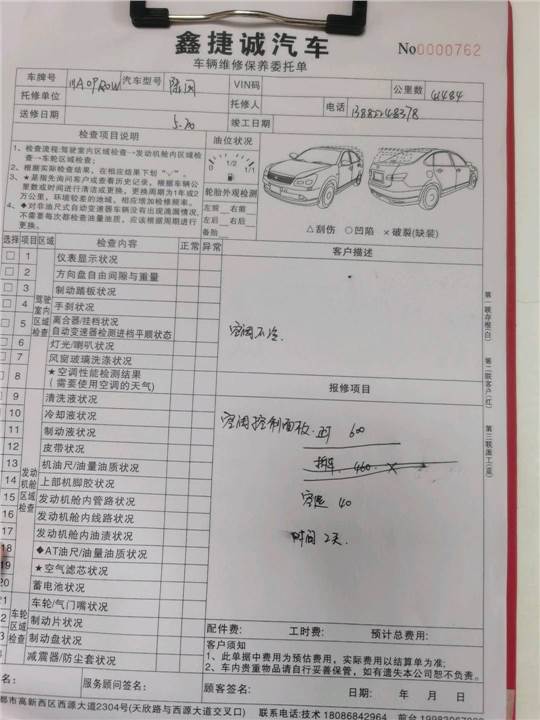 鑫捷诚汽车
车辆维修保养委托单
No0000762
车牌号 汽车型号 VIN码 公里数 41484
托修单位 托修人 电话
送修日期 5.20 竣工日期
检查项目说明 油位状况
1、检查流程:驾驶室内区域检查→发动机舱内区域检
查→车轮区域检查;
2、根据实际检查结果,在相应结果下划“√”。
3、★是指先询问客户或查看历史记录,根据车辆公
里数或时间进行清洁或更换。更换周期为1年或2
万公里,环境较差的地域,相应增加检修频率。
4、◆对非油尺式自动变速器车辆没有出现渗漏情况,
不需要每次都检查油量油质,应该根据周期进行
更换。
0 1/2 1/1
轮胎外观检测
左前 右前
左后 右后
备胎
△刮伤 ○凹陷 ×破裂(缺装)
选择 项目区域 检查内容 正常 异常 客户描述
1 仪表显示状况
2 方向盘自由间隙与重量
3 制动踏板状况
4 手刹状况
5 离合器/挂档状况
自动变速器检测进档平顺状态
6 灯光/喇叭状况
7 风窗玻璃洗涤状况
8 ★空调性能检测结果
(需要使用空调的天气)
驾驶
室内
区域
检查
空调不冷
报修项目
9 清洗液状况
10 冷却液状况
11 制动液状况
12 皮带状况
13 机油尺/油量油质状况
14 上部机脚胶状况
15 发动机舱内管路状况
16 发动机舱内线路状况
17 发动机舱内油渍状况
18 ◆AT油尺/油量油质状况
19 ★空气滤芯状况
20 蓄电池状况
发动
机舱
区域
检查
空调控制面板 600
460 ×
40
时间2天
21 车轮/气门嘴状况
制动片状况
制动盘状况
减震器/防尘套状况
车轮
区域
检查
配件费: 工时费: 预计总费用:
客户须知
1、此单据中费用为预估费用,实际费用以结算单为准;
2、车内贵重物品请自行妥善保管,如有遗失本公司恕不负责。
签名: 服务顾问签名: 日期: 年 月 日
都市高新西区西源大道2304号(天欣路与西源大道交叉口) 联系电话:技术 18086842964 前台
第一联存根(白)
第二联客户(红)
第三联施工(黄)